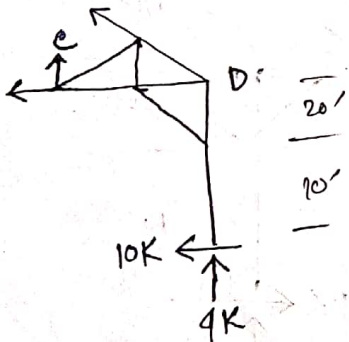 C
D
20'
10'
10K
4K